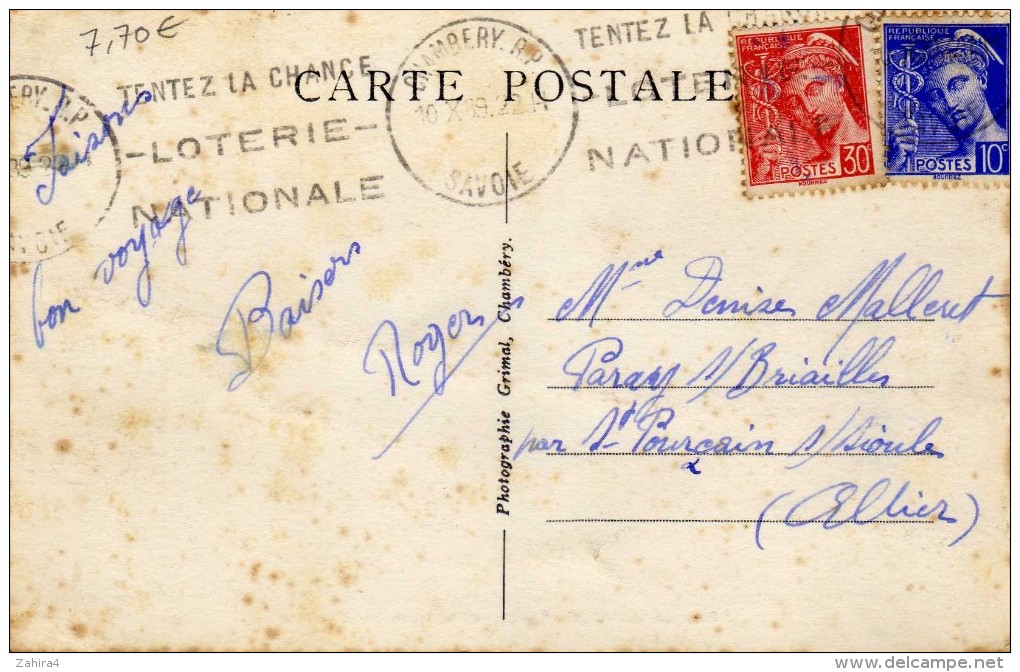 7,70€
TENTEZ LA CHANCE
-LOTERIE-
NATIONALE
CHAMBERY. R.P.
SAVOIE
TENTEZ LA
CARTE POSTALE
REPUBLIQUE
FRANÇAISE
POSTES 30c
REPUBLIQUE
FRANÇAISE
POSTES 10c
bon voyage
Baisers
Roger
Photographie Grimal, Chambéry.
Mme Denise Malleret
Paray s/ Briailles
par St Pourçain s/ Sioule
(Allier)
Zahira4
www.delcampe.net